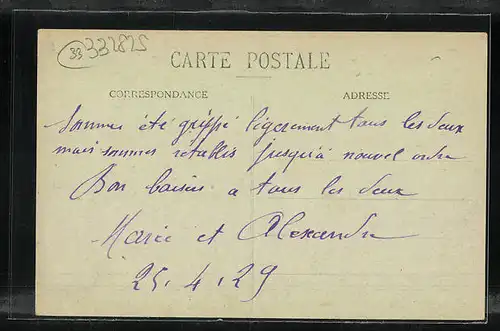 33 332825
CARTE POSTALE
CORRESPONDANCE ADRESSE
Sommes été grippé ligerement tous les deux
mais sommes rétablis jusqu'à nouvel ordre
Bon baisers a tous les deux
Marie et Alexandre
25.4.29